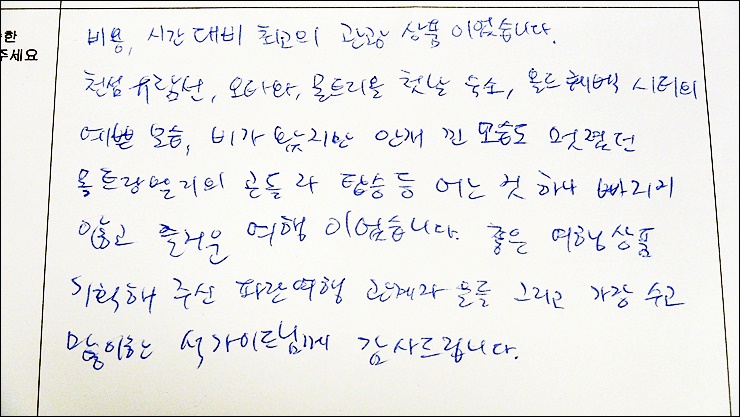 한
주세요
비용, 시간 대비 최고의 관광 상품 이었습니다.
천섬 유람선, 오타와, 몬트리올 첫날 숙소, 올드 퀘백 시티의
예쁜 모습, 비가 왔지만 안개 낀 모습도 멋졌던
몽트랑블랑의 곤돌라 탑승 등 어느 것 하나 빠지지
않고 즐거운 여행 이었습니다. 좋은 여행상품
기획해 주신 파란여행 관계자 분들 그리고 가장 수고
많이하는 석가이드님께 감사드립니다.